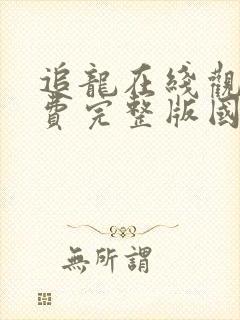 追龍在綫觀
費完整版國
無所謂